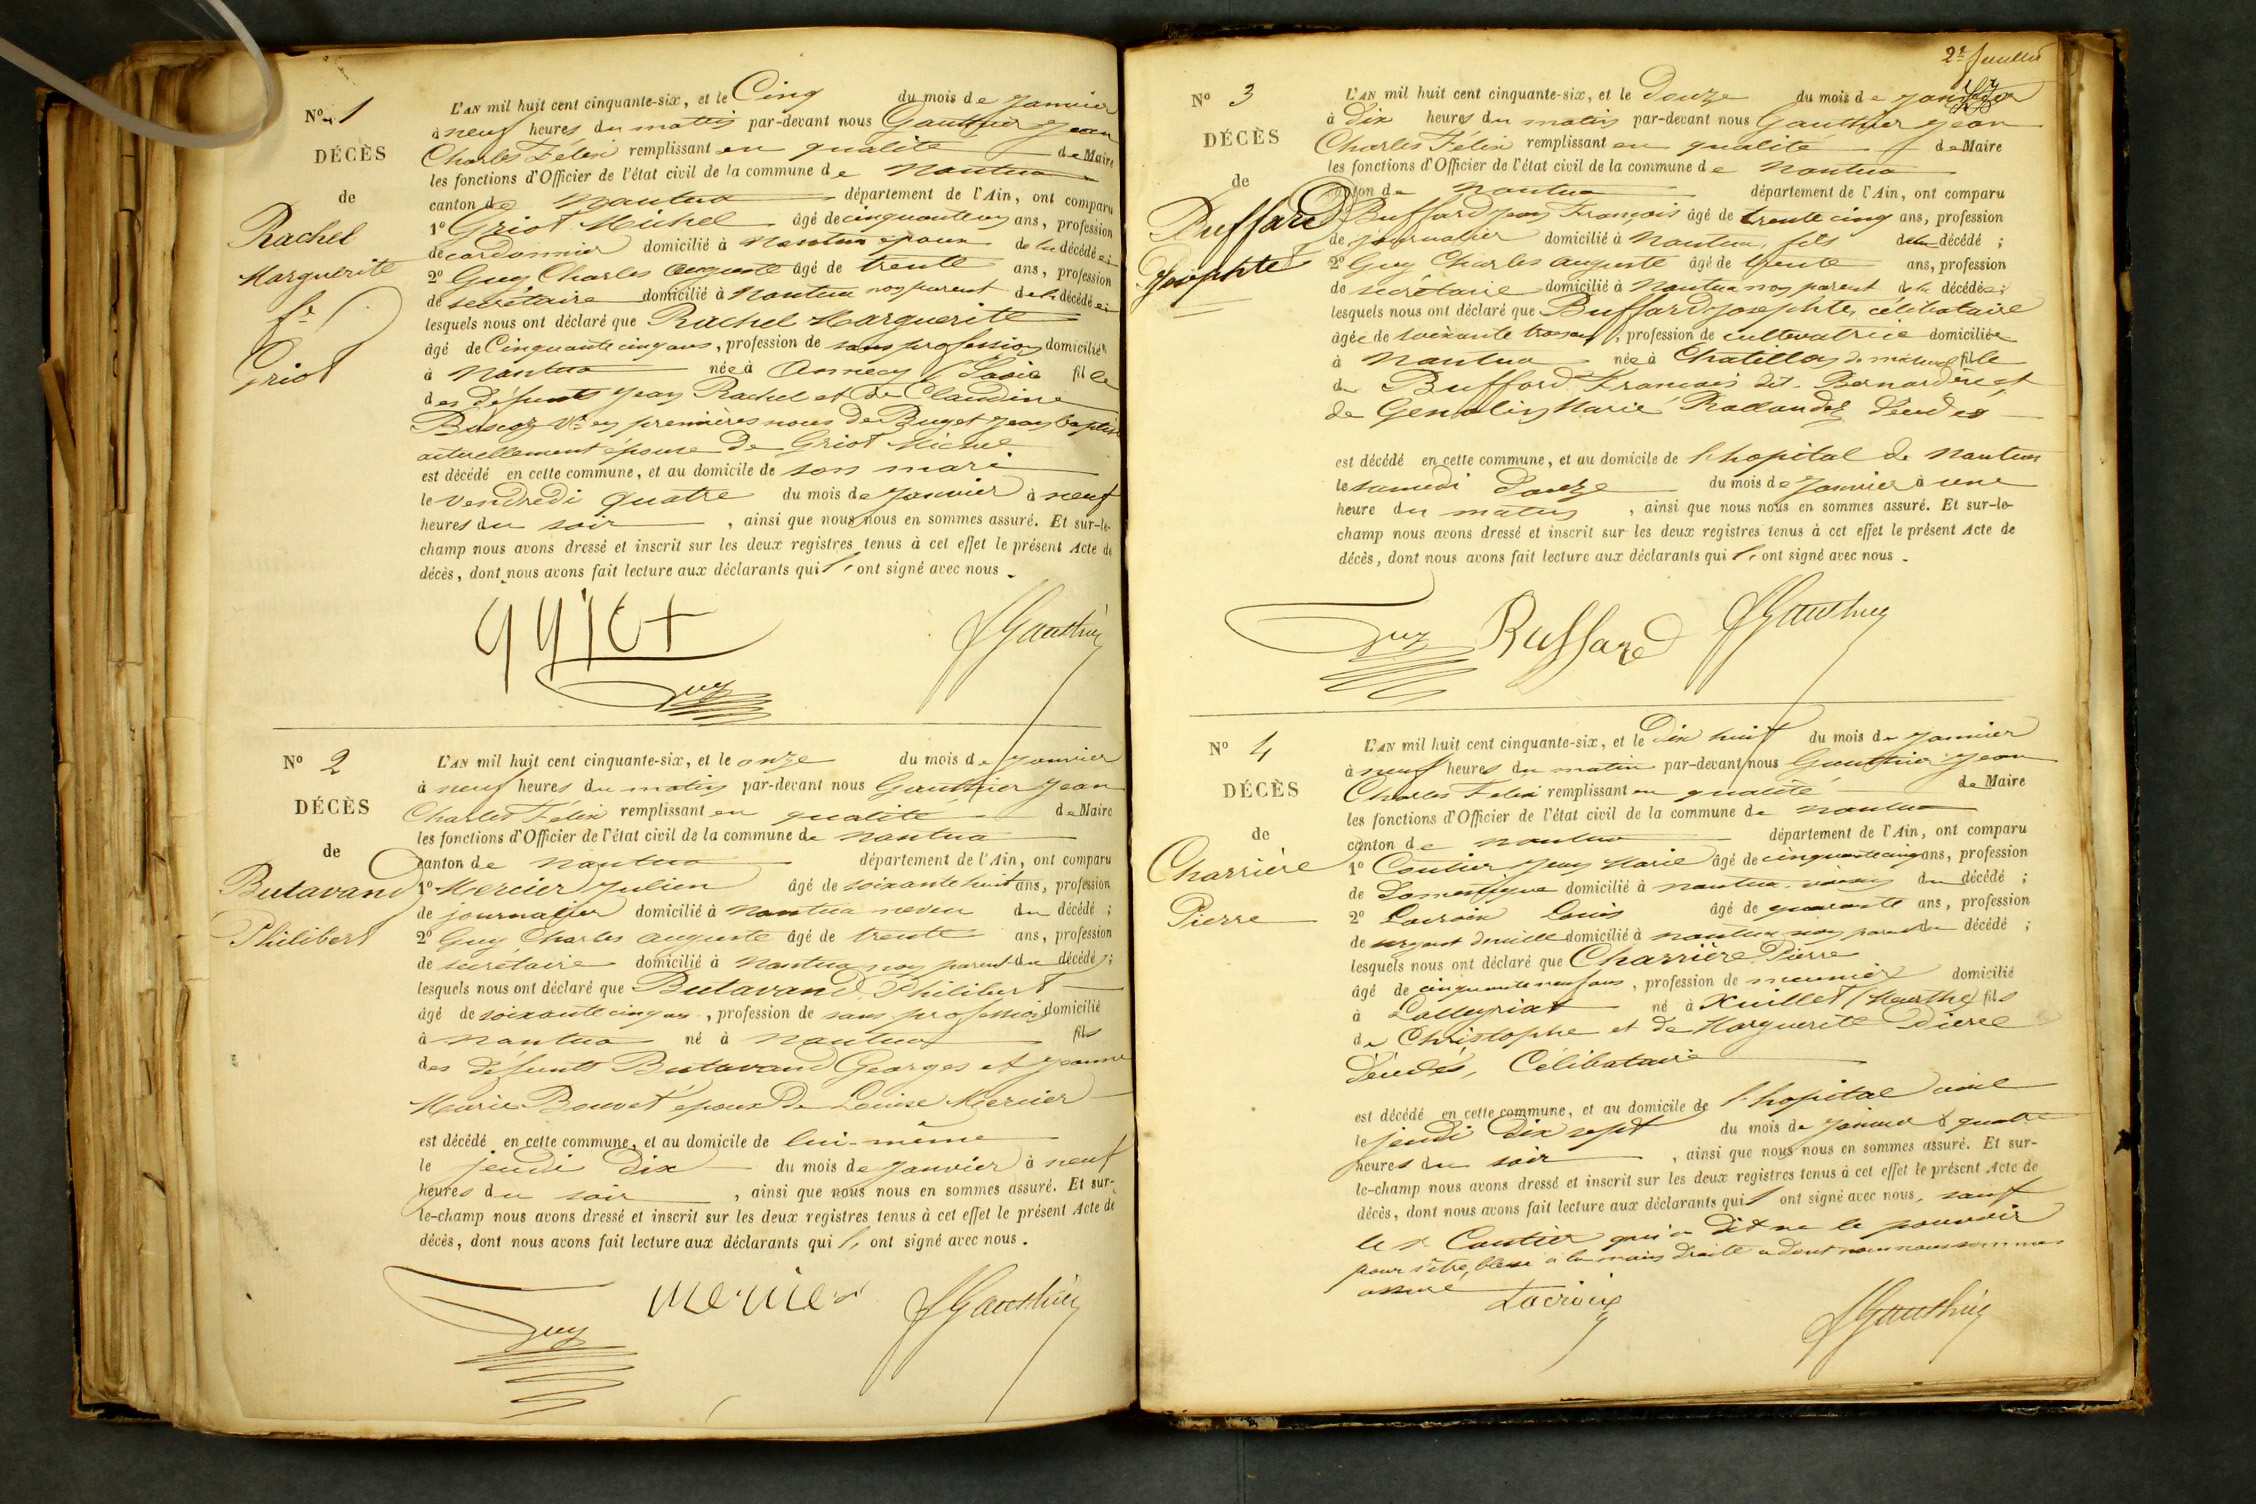 N.º 1
DÉCÈS
de
Rachel
Marguerite
fe
Griot
L'AN mil huit cent cinquante-six, et le Cinq du mois de Janvier
à neuf heures du matin par-devant nous Gauthier Jean
Charles Félix remplissant en qualité de Maire
les fonctions d'Officier de l'état civil de la commune de Nantua
canton de Nantua département de l'Ain, ont comparu
1º Griot Michel âgé de cinquante un ans, profession
de cordonnier domicilié à Nantua époux de la décédée;
2º Guy Charles Auguste âgé de trente ans, profession
de secrétaire domicilié à Nantua non parent de la décédée;
lesquels nous ont déclaré que Rachel Marguerite
âgé de Cinquante cinq ans, profession de sans profession domiciliée
à Nantua née à Annecy (Savoie fille
des défunts Jean Rachel et de Claudine
Buscoz Ve en premières noces de Buget Jean Baptiste
actuellement épouse de Griot Michel
est décédé en cette commune, et au domicile de son mari
le vendredi quatre du mois de Janvier à neuf
heures du soir, ainsi que nous nous en sommes assuré. Et sur-le-
champ nous avons dressé et inscrit sur les deux registres tenus à cet effet le présent Acte de
décès, dont nous avons fait lecture aux déclarants qui l'ont signé avec nous.
griot
Guy
JGauthier
Nº 2
DÉCÈS
de
Butavand
Philibert
L'AN mil huit cent cinquante-six, et le onze du mois de Janvier
à neuf heures du matin par-devant nous Gauthier Jean
Charles Félix remplissant en qualité de Maire
les fonctions d'Officier de l'état civil de la commune de Nantua
canton de Nantua département de l'Ain, ont comparu
1º Mercier Julien âgé de soixante huit ans, profession
de journalier domicilié à Nantua neveu du décédé;
2º Guy Charles Auguste âgé de trente ans, profession
de secrétaire domicilié à Nantua non parent du décédé;
lesquels nous ont déclaré que Butavand Philibert
âgé de soixante cinq ans, profession de sans profession domicilié
à Nantua né à Nantua fils
des défunts Butavand Georges et Jeanne
Marie Bouvet époux de Louise Mercier
est décédé en cette commune, et au domicile de lui-même
le jeudi dix du mois de Janvier à neuf
heures du soir, ainsi que nous nous en sommes assuré. Et sur-
le-champ nous avons dressé et inscrit sur les deux registres tenus à cet effet le présent Acte de
décès, dont nous avons fait lecture aux déclarants qui l'ont signé avec nous.
Guy
mercier
JGauthier
2e feuillet
Nº 3
DÉCÈS
de
Buffard
Josephte
L'AN mil huit cent cinquante-six, et le Douze du mois de Janvier
à Dix heures du matin par-devant nous Gauthier Jean
Charles Félix remplissant en qualité de Maire
les fonctions d'Officier de l'état civil de la commune de Nantua
canton de Nantua département de l'Ain, ont comparu
1º Buffard Jean François âgé de trente cinq ans, profession
de journalier domicilié à Nantua, fils de la décédé;
2º Guy Charles Auguste âgé de trente ans, profession
de secrétaire domicilié à Nantua non parent de la décédée;
lesquels nous ont déclaré que Buffard Josephte, célibataire
âgée de soixante trois ans, profession de cultivatrice domiciliée
à Nantua née à Chatillon de michaille fille
de Buffard François dit Bernardin et
de Genolin Marie décédés
est décédé en cette commune, et au domicile de l'hopital de Nantua
le samedi Douze du mois de Janvier à une
heure du matin, ainsi que nous nous en sommes assuré. Et sur-le-
champ nous avons dressé et inscrit sur les deux registres tenus à cet effet le présent Acte de
décès, dont nous avons fait lecture aux déclarants qui l'ont signé avec nous.
Guy
Buffard
JGauthier
Nº 4
DÉCÈS
de
Charrière
Pierre
L'AN mil huit cent cinquante-six, et le Dix huit du mois de Janvier
à neuf heures du matin par-devant nous Gauthier Jean
Charles Félix remplissant en qualité de Maire
les fonctions d'Officier de l'état civil de la commune de Nantua
canton de Nantua département de l'Ain, ont comparu
1º Coutier Jean Marie âgé de cinquante cinq ans, profession
de Domestique domicilié à Nantua voisin du décédé;
2º Lacroix Louis âgé de quarante ans, profession
de sergent de ville domicilié à Nantua non parent du décédé;
lesquels nous ont déclaré que Charrière Pierre
âgé de cinquante neuf ans, profession de meunier domicilié
à Lalleyriat né à Xuillet (Meurthe) fils
de Christophe et de Marguerite Dierce
Décédés, Célibataire
est décédé en cette commune, et au domicile de l'hopital civil
le jeudi Dix sept du mois de Janvier à quatre
heures du soir, ainsi que nous nous en sommes assuré. Et sur-
le-champ nous avons dressé et inscrit sur les deux registres tenus à cet effet le présent Acte de
décès, dont nous avons fait lecture aux déclarants qui l'ont signé avec nous, sauf
le s. Coutier qui a dit ne le pouvoir
pour s'être blessé à la main droite dont nous nous sommes
assuré
Lacroix
JGauthier